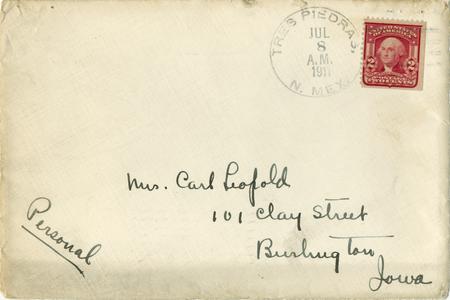 TRES PIEDRAS,
JUL
8
A.M.
1911
N. MEX.
2 2
Mrs. Carl Leopold
101 Clay Street
Burlington
Iowa
Personal